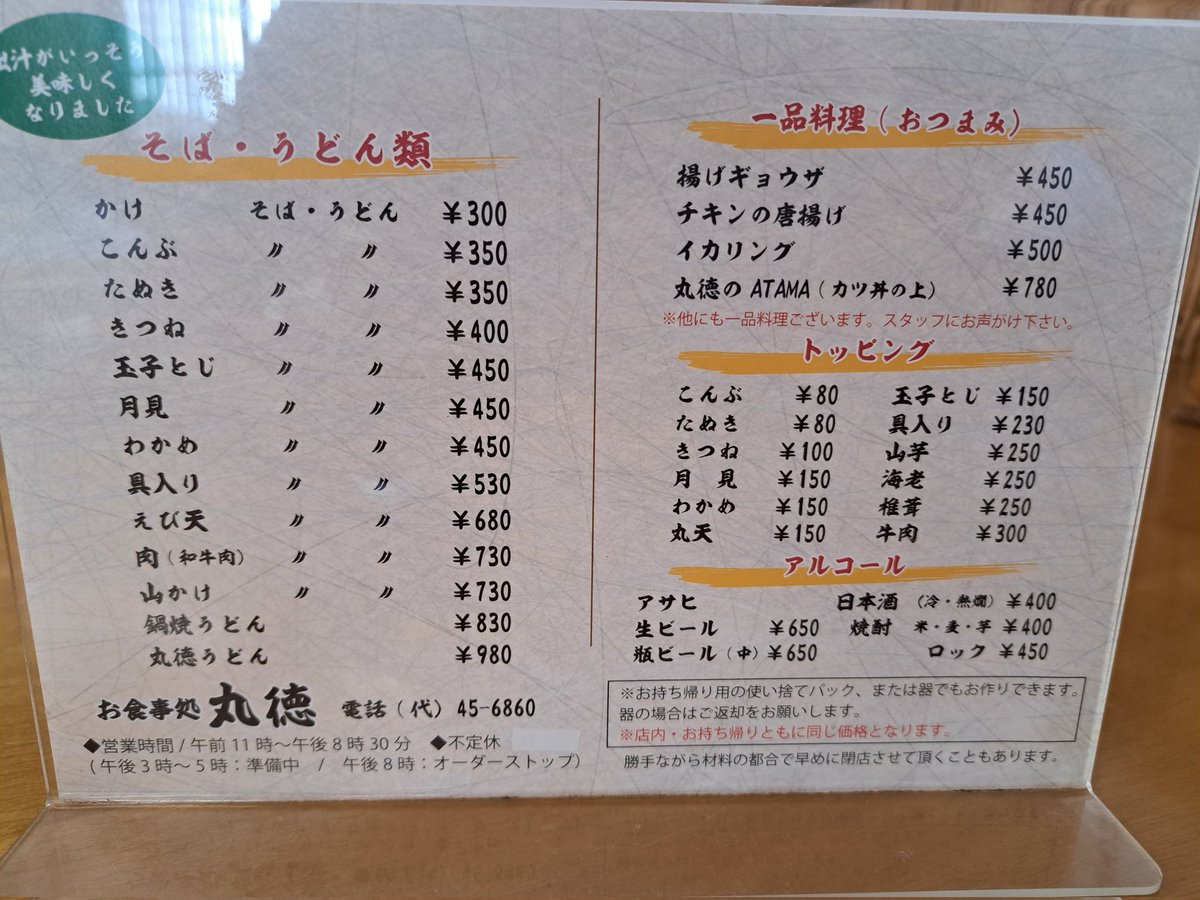 がいっそう
美味しく
なりました
そば・うどん類
かけ そば・うどん ¥300
こんぶ 〃 〃 ¥350
たぬき 〃 〃 ¥350
きつね 〃 〃 ¥400
玉子とじ 〃 〃 ¥450
月見 〃 〃 ¥450
わかめ 〃 〃 ¥450
具入り 〃 〃 ¥530
えび天 〃 〃 ¥680
肉(和牛肉) 〃 〃 ¥730
山かけ 〃 〃 ¥730
鍋焼うどん ¥830
丸徳うどん ¥980
お食事処 丸徳 電話(代)45-6860
◆営業時間/午前11時〜午後8時30分 ◆不定休
(午後3時〜5時:準備中 / 午後8時:オーダーストップ)
一品料理(おつまみ)
揚げギョウザ ¥450
チキンの唐揚げ ¥450
イカリング ¥500
丸徳のATAMA(カツ丼の上) ¥780
※他にも一品料理ございます。スタッフにお声がけ下さい。
トッピング
こんぶ ¥80 玉子とじ ¥150
たぬき ¥80 具入り ¥230
きつね ¥100 山芋 ¥250
月見 ¥150 海老 ¥250
わかめ ¥150 椎茸 ¥250
丸天 ¥150 牛肉 ¥300
アルコール
アサヒ 日本酒 (冷・熱燗) ¥400
生ビール ¥650 焼酎 米・麦・芋 ¥400
瓶ビール(中) ¥650 ロック ¥450
※お持ち帰り用の使い捨てパック、または器でもお作りできます。
器の場合はご返却をお願いします。
※店内・お持ち帰りともに同じ価格となります。
勝手ながら材料の都合で早めに閉店させて頂くこともあります。